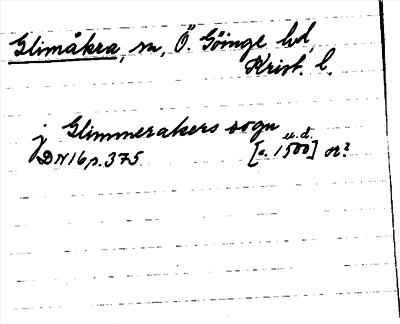 Glimåkra, sn, Ö. Göinge hd,
Krist. l.
j Glimmerakers sogn u.d.
DN 16 s. 375. [c. 1500] or?